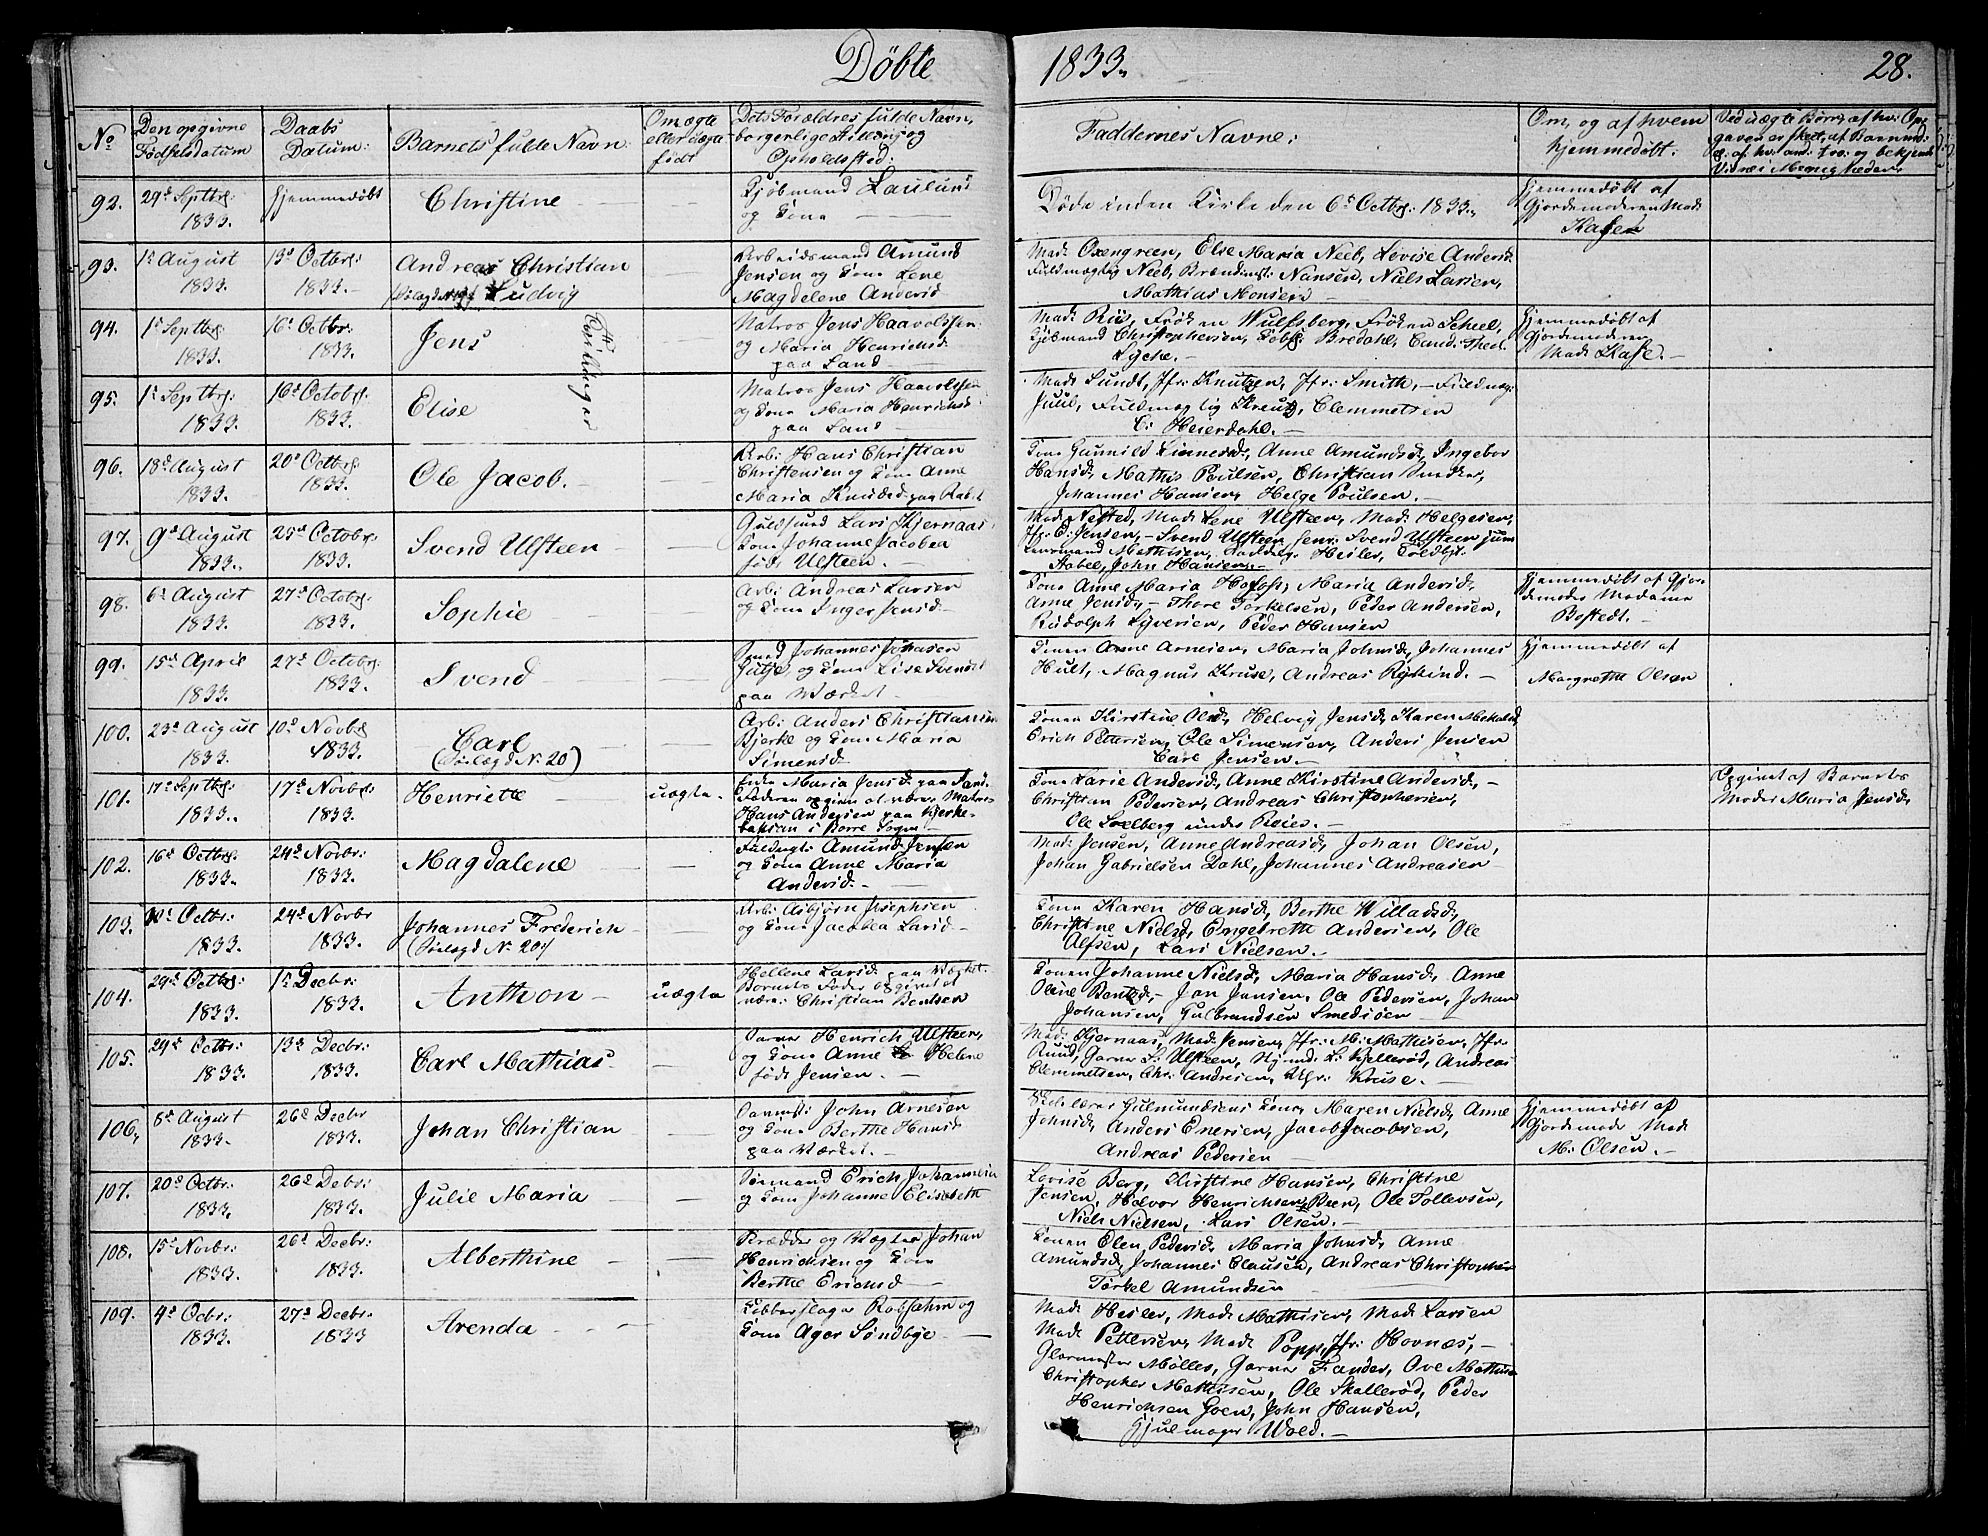 Döbte 1833. 28.
No
Den opgivne Födselsdatum
Daabs Datum:
Barnets fulde Navn:
Om ægte eller uægte födt
Dets Forældres fulde Navn, borgerlige Stilling og Opholdssted:
Faddernes Navne:
Om, og af hvem hjemmedöbt:
92. 29d Septbr: 1833. Hjemmedöbt Christine
Kjöbmand Laulund
og Kone
Döde inden Kirke den 6d Octbr: 1833.
Hjemmedöbt af
Gjordemoderen Mad:
93. 1d August 1833. 13d Octbr: 1833. Andreas Christian
Ludvig
Arbeidsmand Amund
Jensen og Kone Lene
Magdelene Andersd
Mad: Oxengreen, Elise Maria Neeb, Lovise Andersd
Fuldmægtig Neeb, Brændmst: Nansen, Niels Larsen,
Mathias Monsen
94. 1d Septbr: 1833. 16d Octbr: 1833. Jens
Tvillinger
Matros Jens Haavoldsen
og Maria Henrichsd
paa Land
Mad: Riis, Fröken Wulfsberg, Fröken Scheel,
Kjöbmand Christophersen, Bredahl, Cand. Theol.
Lyche.
Hjemmedöbt af
Gjordemoderen
95. 1d Septbr: 1833. 16d Octobr: 1833. Elise
Matros Jens Haavoldsen
og Kone Maria Henrichsd
paa Land
Mad: Sundt, Jfr: Knutzen, Jfr: Smith, Fuldmæg:
Juul, Fuldmægtig Kreutz, Clemmetsen
C: Heierdahl.
96. 18d August 1833. 20d Octbr: 1833. Ole Jacob.
Arb: Hans Christian
Christensen og Kone Anne
Maria Knudsd paa
Kone Gunnild Linnesd, Anne Amundsd, Ingebor
Hansd, Mathis Poulsen, Christian Snedker,
Johannes Hansen, Helge Poulsen.
97. 9d August 1833. 25d Octobr: 1833. Svend Ulsteen
Guldsmed Lars Kjernaas
Kone Johanne Jacobea
födt Ulsteen.
Mad: Nested, Mad: Lene Ulsteen, Mad: Helgesen,
Jfr: E: Jensen, Svend Ulsteen senr: Svend Ulsteen jun
Mathisen, Heiler,
Stabel, John Hansen.
98. 6d August 1833. 27d Octobr: 1833. Sophie
Arb: Andreas Larsen
og Kone Inger Jensd
Kone Anne Maria Maria Andersd,
Anne Jensd, Thore Torkelsen, Peder Andersen,
Rudolph Syversen, Peder Hansen
Hjemmedöbt af Gjor-
demoder Madame
Bostedt.
99. 15d April 1833. 27d Octobr: 1833. Svend
Smed Johannes Johnsen
og Kone Lise Svendsd
paa Værket
Konen Anne Arnesen, Maria Johnsd, Johannes
Hult, Magnus Kruse, Andreas
Hjemmedöbt af
Margrethe Olsen
100. 23d August 1833. 10d Novbr: 1833. Carl
(Tilægd No: 20)
Arb: Anders Christiansen
Bjerke og Kone Maria
Simensd
Konen Kirstine Olsd, Helvig Jensd, Karen
Erich Pettersen, Ole Simensen, Anders Jensen
Carl Jensen.
101. 17d Septbr: 1833. 17d Novbr: 1833. Henriette uægte.
Maria Jensd paa
Faderen opgiven at være Matros
Hans Andersen paa Bjerke-
i Borre Sogn
Kone Karie Andersd, Anne Kirstine Andersd,
Christian Pedersen, Andreas Christophersen,
Ole Solberg under
Opgivet af Barnets
Moder Maria Jensd,
102. 16d Octbr: 1833. 24d Novbr: 1833. Magdalene
Amund Jensen
og Kone Anne Maria
Andersd.
Mad: Jensen, Anne Andreasd, Johan Olsen,
Johan Gabrielsen Dahl, Johannes Andreasen
103. 10d Octbr: 1833. 24d Novbr 1833. Johannes Frederich
(Tilægd No: 20)
Arb: Asbjörn Josephsen
og Kone Jacobea Larsd
Kone Karen Hansd, Berthe Willadsd,
Christine Nielsd, Engebrette Andersen, Ole
Alfsen, Lars Nielsen.
104. 29d Octbr: 1833. 1d Decbr: 1833. Anthon uægte
Hellene Larsd paa Værket.
Barnets Fader opgivet at
være: Christian Bentsen
Konen Johanne Nielsd, Maria Hansd, Anne
Oline Bentsd, Jan Jansen, Ole Pedersen, Johan
Johansen, Gulbrandsen Smedsöen
105. 29d Octbr: 1833. 13d Decbr: 1833. Carl Mathias
Garver Henrich Ulsteen,
og Kone Anne Helene
födt Jensen.
Mad: Kjernaas, Mad: Jensen, Jfr: M: Mathisen, Jfr:
Garver S: Ulsteen, L: Hjelleröd, Andreas
Clemmetsen, Chr: Andresen, Kruse.
106. 8d August 1833. 26d Decbr 1833. Johan Christian
John Arnesen
og Kone Berthe Hansd
paa Værket.
Gulmundsens Kone, Maren Nielsd, Anne
Johnsd, Anders Enersen, Jacob Jacobsen,
Andreas Pedersen
Hjemmedöbt af
Gjordemoder Mad
M: Olsen.
107. 20d Octbr: 1833. 26d Debr: 1833. Julie Maria
Sömand Erich Johannesen
og Kone Johanne Elisebeth
Lovise Berg, Christine Hansen, Christine
Jensen, Halvor Henrichsen Been, Ole Tollevsen,
Niels Nielsen, Lars Olsen.
108. 15d Novbr: 1833. 26d Decbr: 1833. Alberthine
Skrædder og Vægter Johan
Henrichsen og Kone
Berthe Erichsd
Konen Elen Pedersd, Maria Johnsd, Anne
Amundsd, Johannes Clausen, Andreas Christophers
Torkel Amundsen
109. 4d Ocbr: 1833. 27d Decbr: 1833 Arenda
Kobberslager Robsahm og
Kone Ager Söndbye
Mad: Heiler, Mad: Mathisen, Mad: Larsen
Mad: Pettersen, Mad: Popp, Jfr: Hovnæs,
Glarmester Möller, Garver Frander, Ove Mathisen
Christopher Mathisen, Ole Skalleröd, Peder
Henrichsen Goen, John Hansen,
Hjulmager Wold.